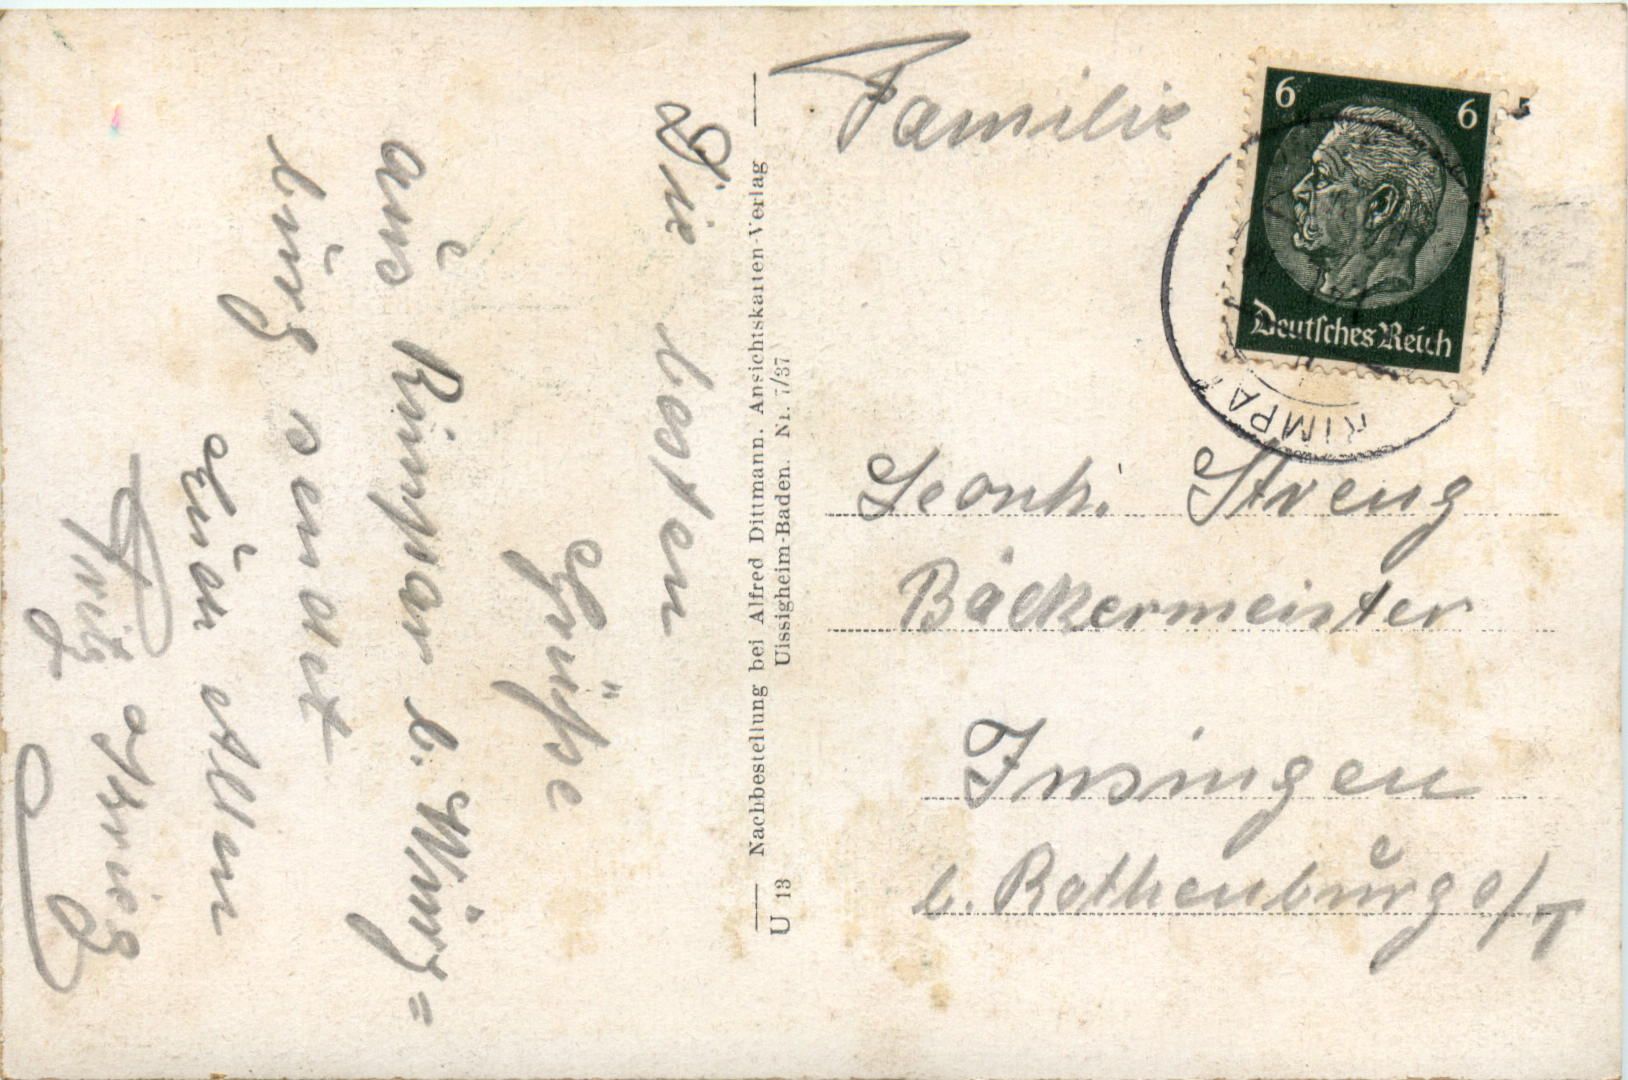 Die besten
Grüße
aus Rimpar b. Würz=
burg sendet
Euch Allen
Fritz
Nachbestellung bei Alfred Dittmann. Ansichtskarten-Verlag
Uissigheim-Baden. Nr. 7/37
U 13
Familie
Leonh. Streng
Bäckermeister
Insingen
b. Rothenburg o/T
6 6
Deutsches Reich
RIMPAR